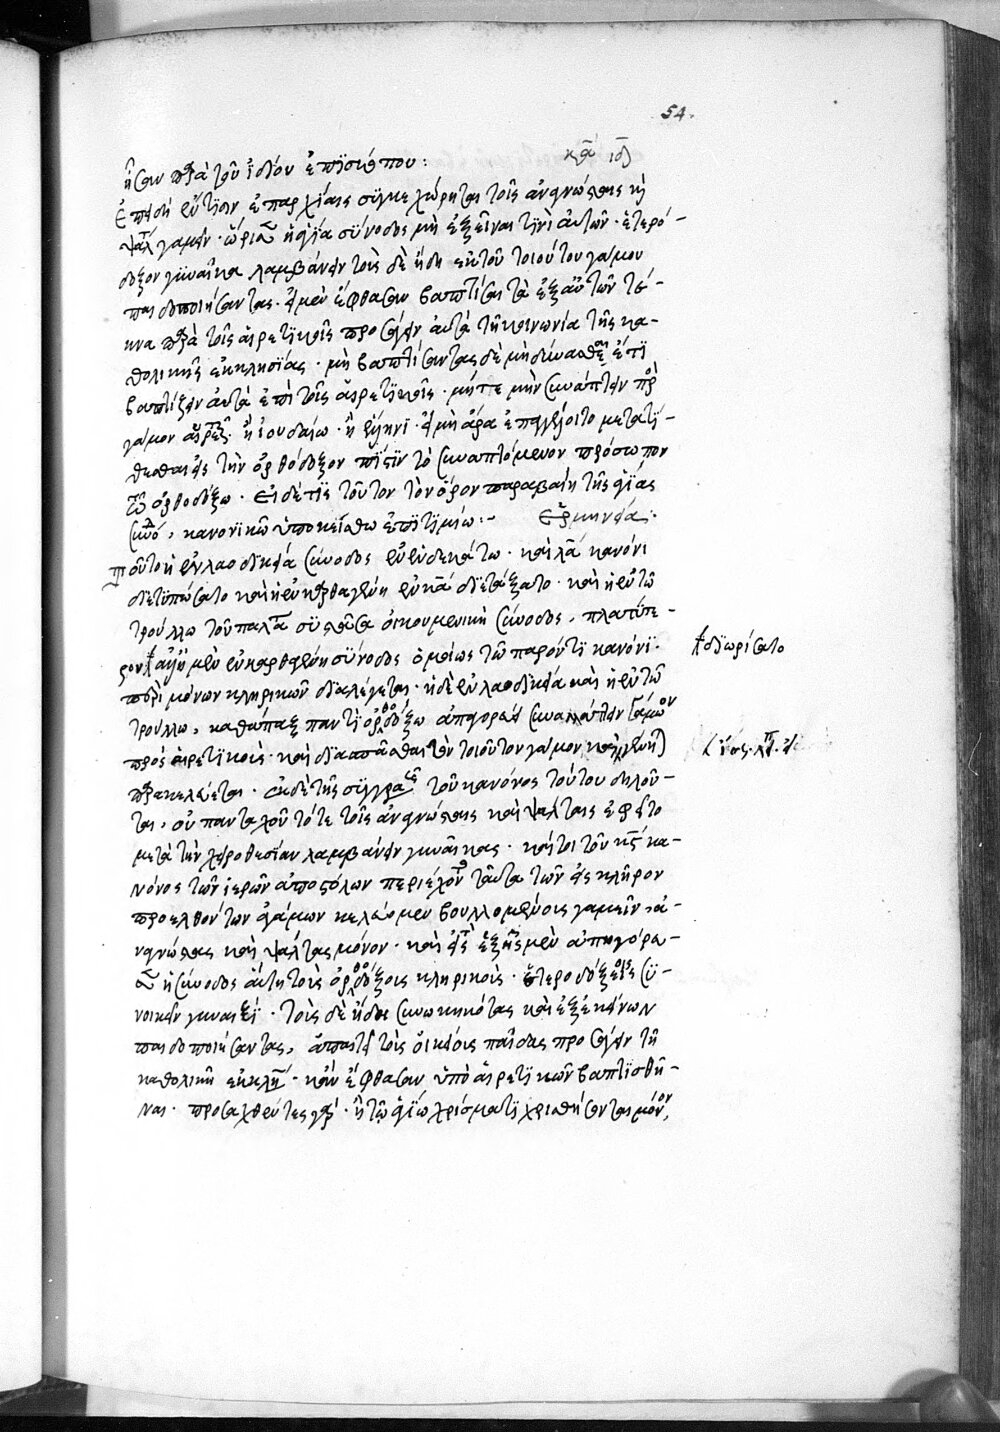 54.
ἦσαν παρὰ τοῦ ἰδίου ἐπισκόπου:
Ἐπειδὴ ἔν τισιν ἐπαρχίαις συγκεχώρηται τοῖς ἀναγνώσταις καὶ
ψάλταις γαμεῖν· ὥρισεν ἡ ἁγία σύνοδος μὴ ἐξεῖναί τινι αὐτῶν· ἑτερό-
δοξον γυναῖκα λαμβάνειν τοὺς δὲ ἤδη ἐκ τοῦ τοιούτου γάμου
παιδοποιήσαντας· εἰ μὲν ἔφθασαν βαπτίσαι τὰ ἐξ αὐτῶν τέ-
κνα παρὰ τοῖς αἱρετικοῖς προσάγειν αὐτὰ τῇ κοινωνίᾳ τῆς κα-
θολικῆς ἐκκλησίας· μὴ βαπτίσαντας δὲ μὴ δύνασθαι ἔτι
βαπτίζειν αὐτὰ ἐπὶ τοῖς αἱρετικοῖς· μήτε μὴν συνάπτειν πρὸς
γάμον αἱρετικῷ ἢ ἰουδαίῳ· ἢ ἕλληνι· εἰ μὴ ἄρα ἐπαγγέλοιτο μετατί-
θεσθαι εἰς τὴν ὀρθόδοξον πίστιν τὸ συναπτόμενον πρόσωπον
τῷ ὀρθοδόξῳ· εἰ δέ τις τοῦτον τὸν ὅρον παραβαίη τῆς ἁγίας
συνόδου, κανονικῷ ὑποκείσθω ἐπιτιμίῳ:- Ἑρμηνεία.
τοῦτο ἡ ἐν λαοδικείᾳ σύνοδος ἐν ἑνδεκάτῳ· καὶ λα κανόνι
διετυπώσατο καὶ ἡ ἐν καρθαγένῃ ἐν κα διετάξατο· καὶ ἡ ἐν τῷ
τρούλλῳ τοῦ παλατίου συστᾶσα οἰκουμενικὴ σύνοδος, πλατύτε-
ρον διωρίσατο
ἀλλ' ἡ μὲν ἐν καρθαγένῃ σύνοδος ὁμοίως τῷ παρόντι κανόνι·
περὶ μόνων κληρικῶν διαλέγεται· ἡ δὲ ἐν λαοδικείᾳ καὶ ἡ ἐν τῷ
τρούλλῳ, καθάπαξ παντὶ ὀρθοδόξῳ ἀπαγορεύει συναλλάττειν γάμον
πρὸς αἱρετικοὺς· καὶ διασπᾶσθαι τὸν τοιοῦτον γάμον
παρακελεύεται· ἐκ δὲ τῆς συγγραφῆς τοῦ κανόνος τούτου δηλοῦ-
ται, οὐ πανταχοῦ τότε τοῖς ἀναγνώσταις καὶ ψάλταις ἐφεῖτο
μετὰ τὴν χειροθεσίαν λαμβάνειν γυναῖκας· καίτοι τοῦ κς κα-
νόνος τῶν ἱερῶν ἀποστόλων περιέχοντος ταῦτα τῶν εἰς κλῆρον
προελθόντων ἀγάμων κελεύομεν βουλλομένοις γαμεῖν ἀ-
ναγνώστας καὶ ψάλτας μόνον· καὶ εἰς τὸ ἑξῆς μὲν ἀπηγόρευ-
σεν ἡ σύνοδος αὕτη τοῖς ὀρθοδόξοις κληρικοῖς· ἑτεροδόξοις συ-
νοικεῖν γυναιξί· τοὺς δὲ ἤδη συνῳκηκότας καὶ ἐξ ἐκείνων
παιδοποιήσαντας, ἀπαιτεῖ τοὺς οἰκείους παῖδας προσάγειν τῇ
καθολικῇ ἐκκλησίᾳ· κἂν ἔφθασαν ὑπὸ αἱρετικῶν βαπτισθῆ-
ναι· προσαχθέντες γὰρ· ἢ τῷ ἁγίῳ χρίσματι χρισθήσονται μόνον,